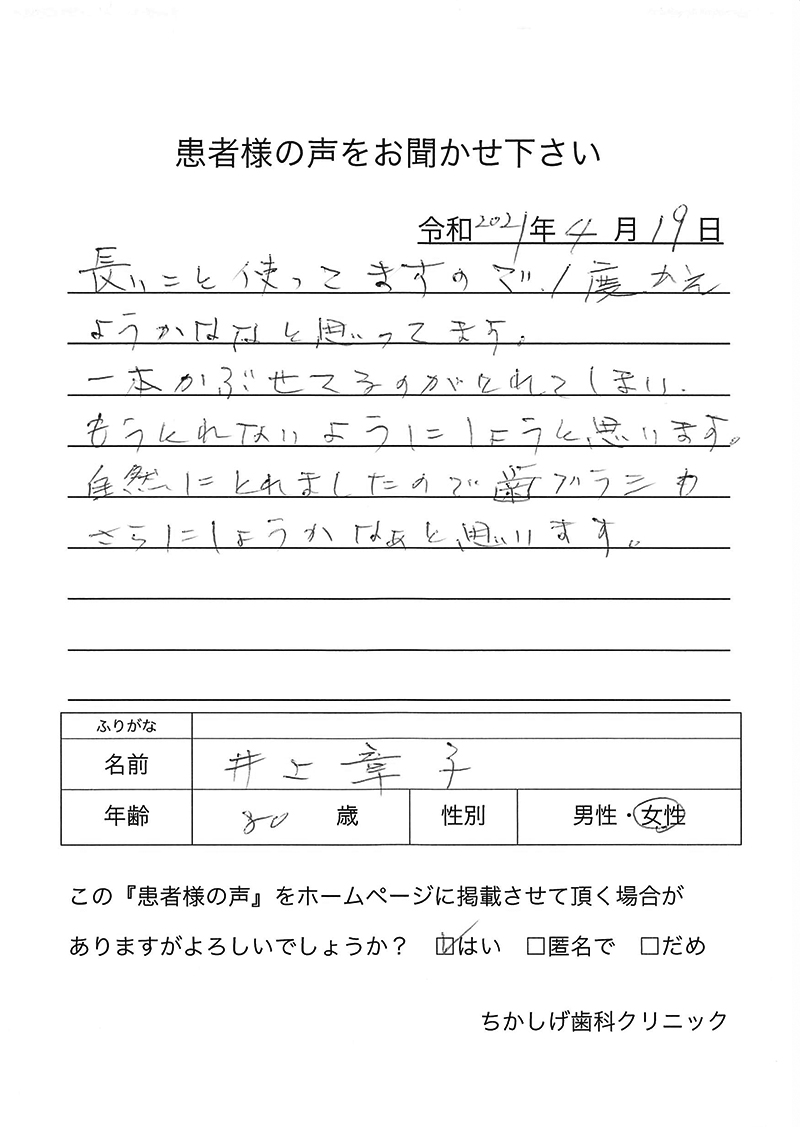 患者様の声をお聞かせ下さい
令和2021年4月19日
長いこと使ってますので、1度かえ
ようかななと思ってます。
一本かぶせてるのがとれてしまい、
もうとれないようにしようと思います。
自然にとれましたので歯ブラシも
さらにしようかなぁと思います。
ふりがな
名前 井上章子
年齢 80 歳 性別 男性・女性
この『患者様の声』をホームページに掲載させて頂く場合が
ありますがよろしいでしょうか？ □はい □匿名で □だめ
ちかしげ歯科クリニック